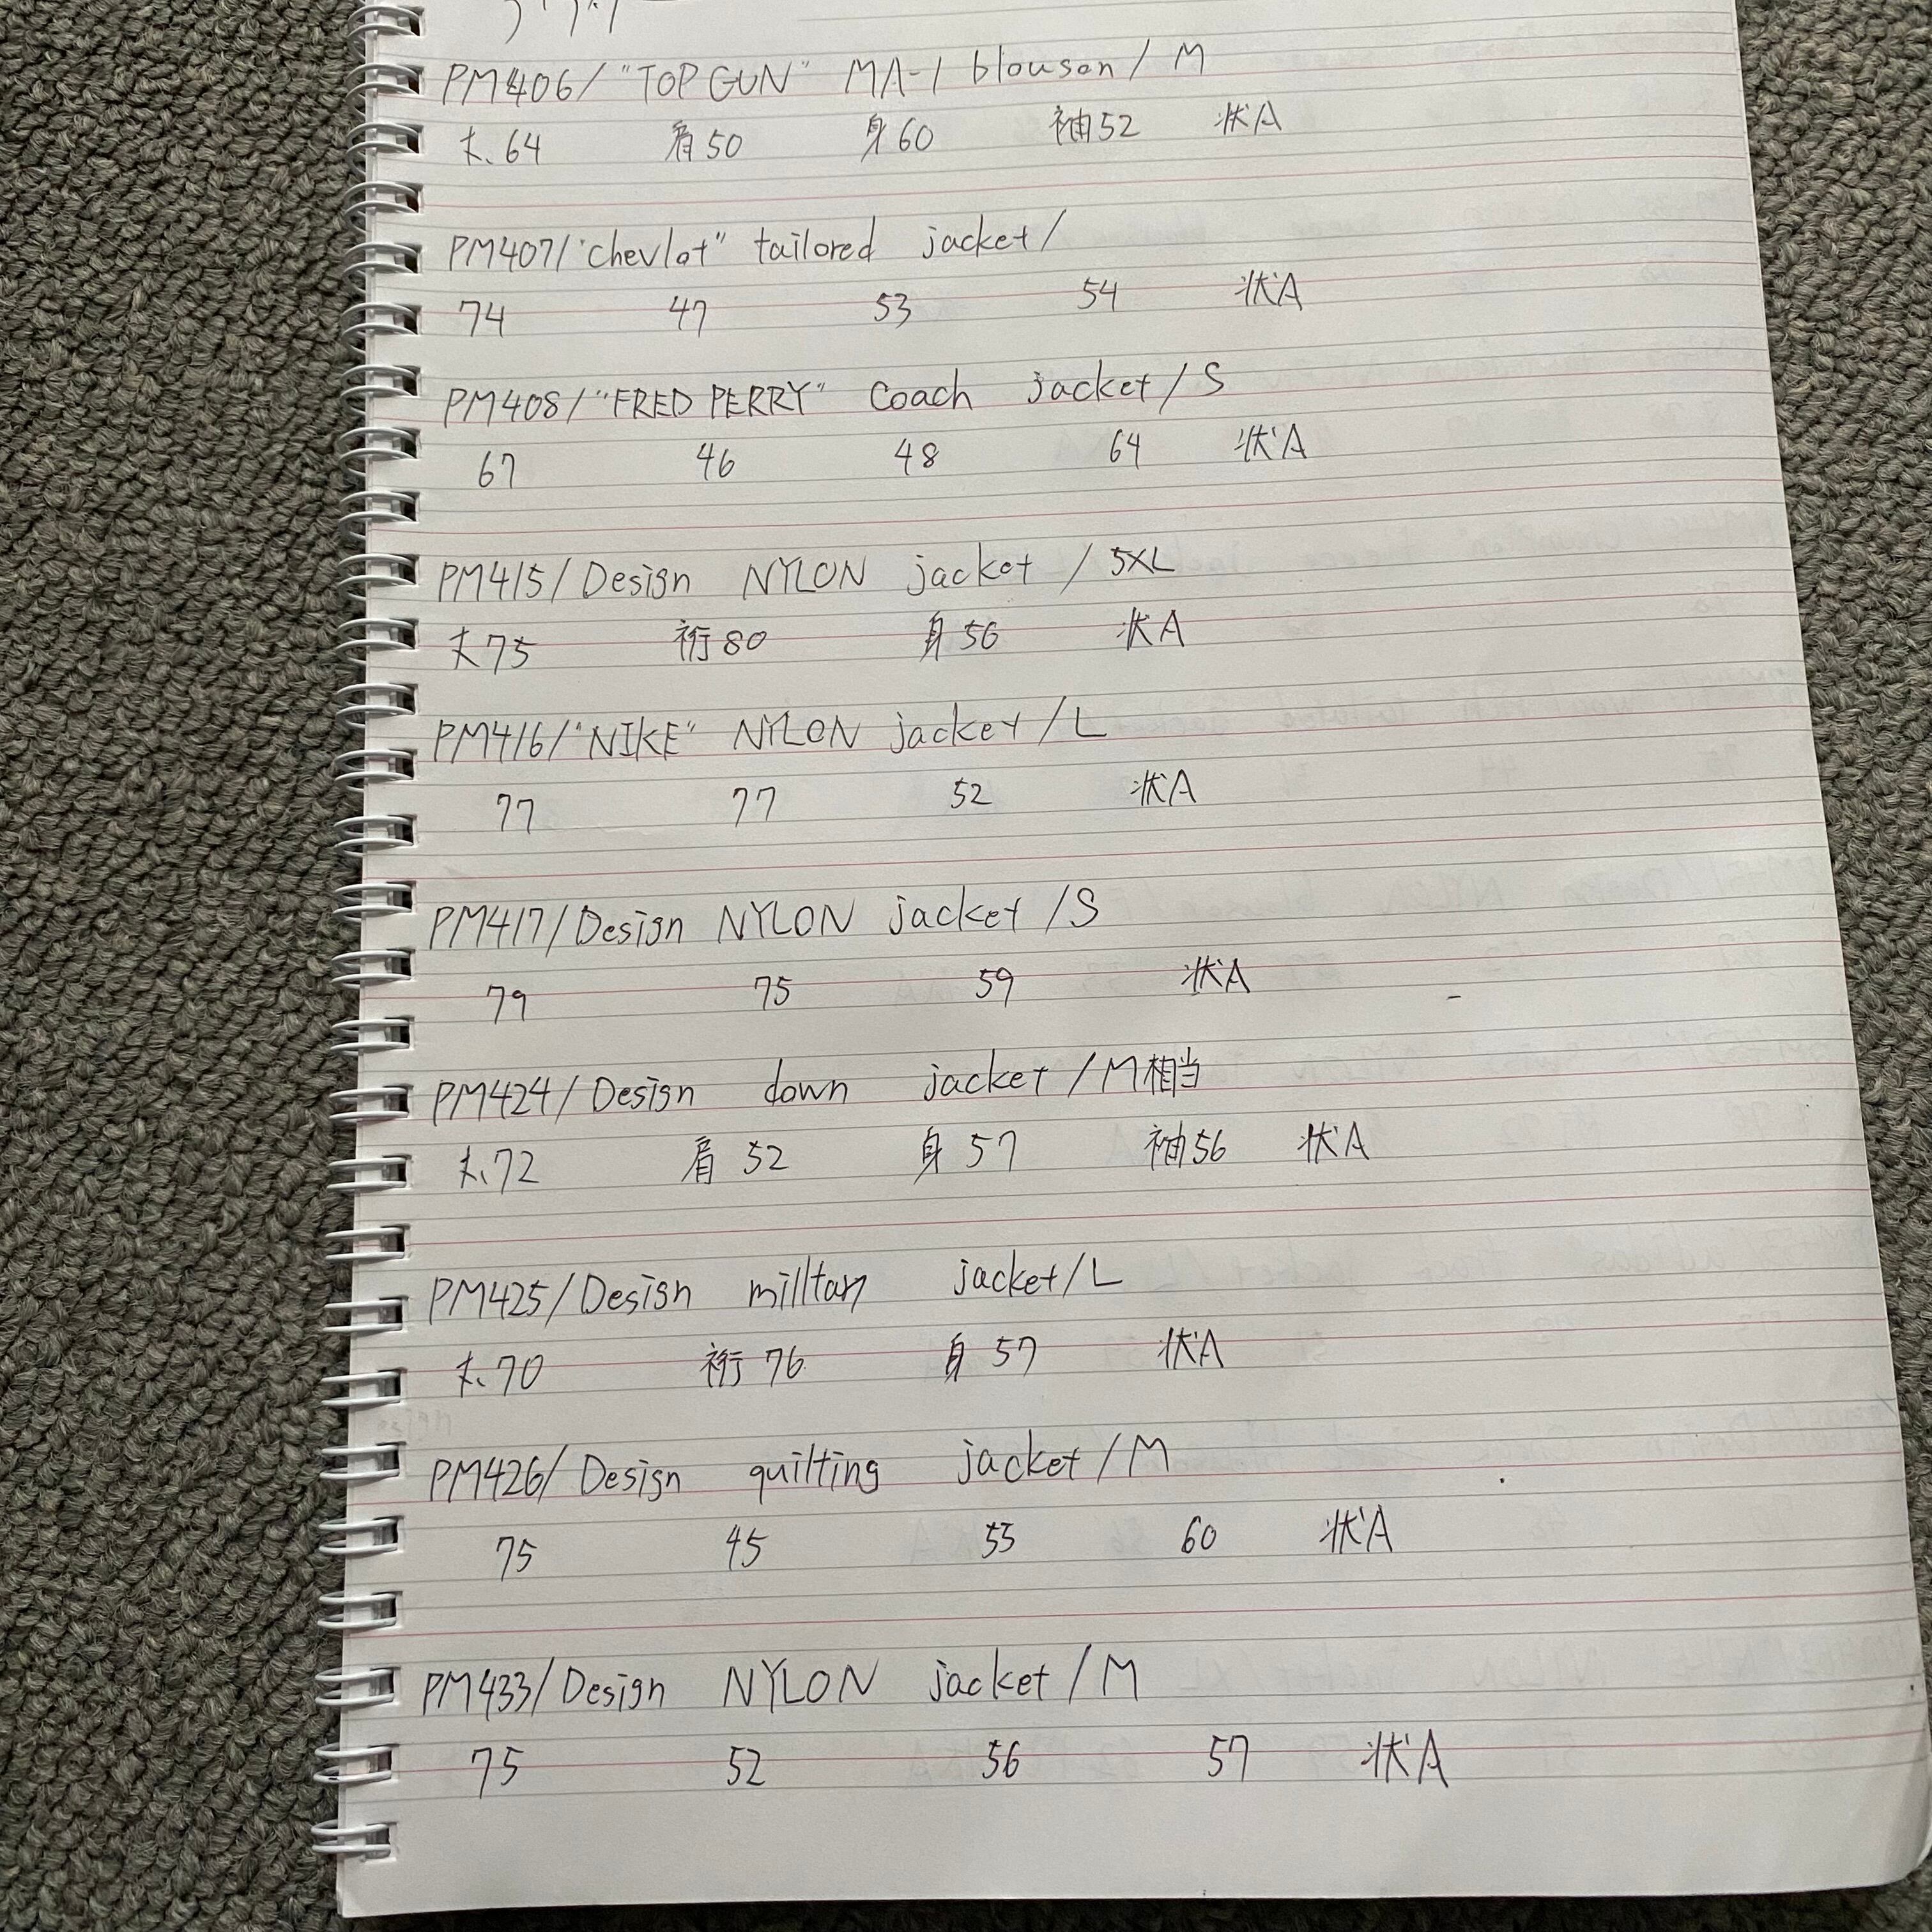 PM406/"TOP GUN" MA-1 blouson/M
丈64 肩50 身60 袖52 状A
PM407/"chevlot" tailored jacket/
74 47 53 54 状A
PM408/"FRED PERRY" Coach jacket/S
67 46 48 64 状A
PM415/Design NYLON jacket/5XL
丈75 裄80 身56 状A
PM416/"NIKE" NYLON jacket/L
77 77 52 状A
PM417/Design NYLON jacket/S
79 75 59 状A
PM424/Design down jacket/M相当
丈72 肩52 身57 袖56 状A
PM425/Design milltary jacket/L
丈70 裄76 身57 状A
PM426/Design quilting jacket/M
75 45 55 60 状A
PM433/Design NYLON jacket/M
75 52 56 57 状A